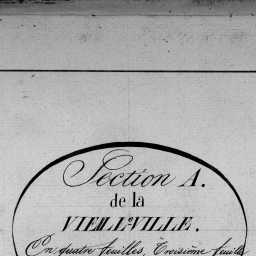 Section A.
de la
VIEILLE-VILLE.
En quatre feuilles, Troisième feuille